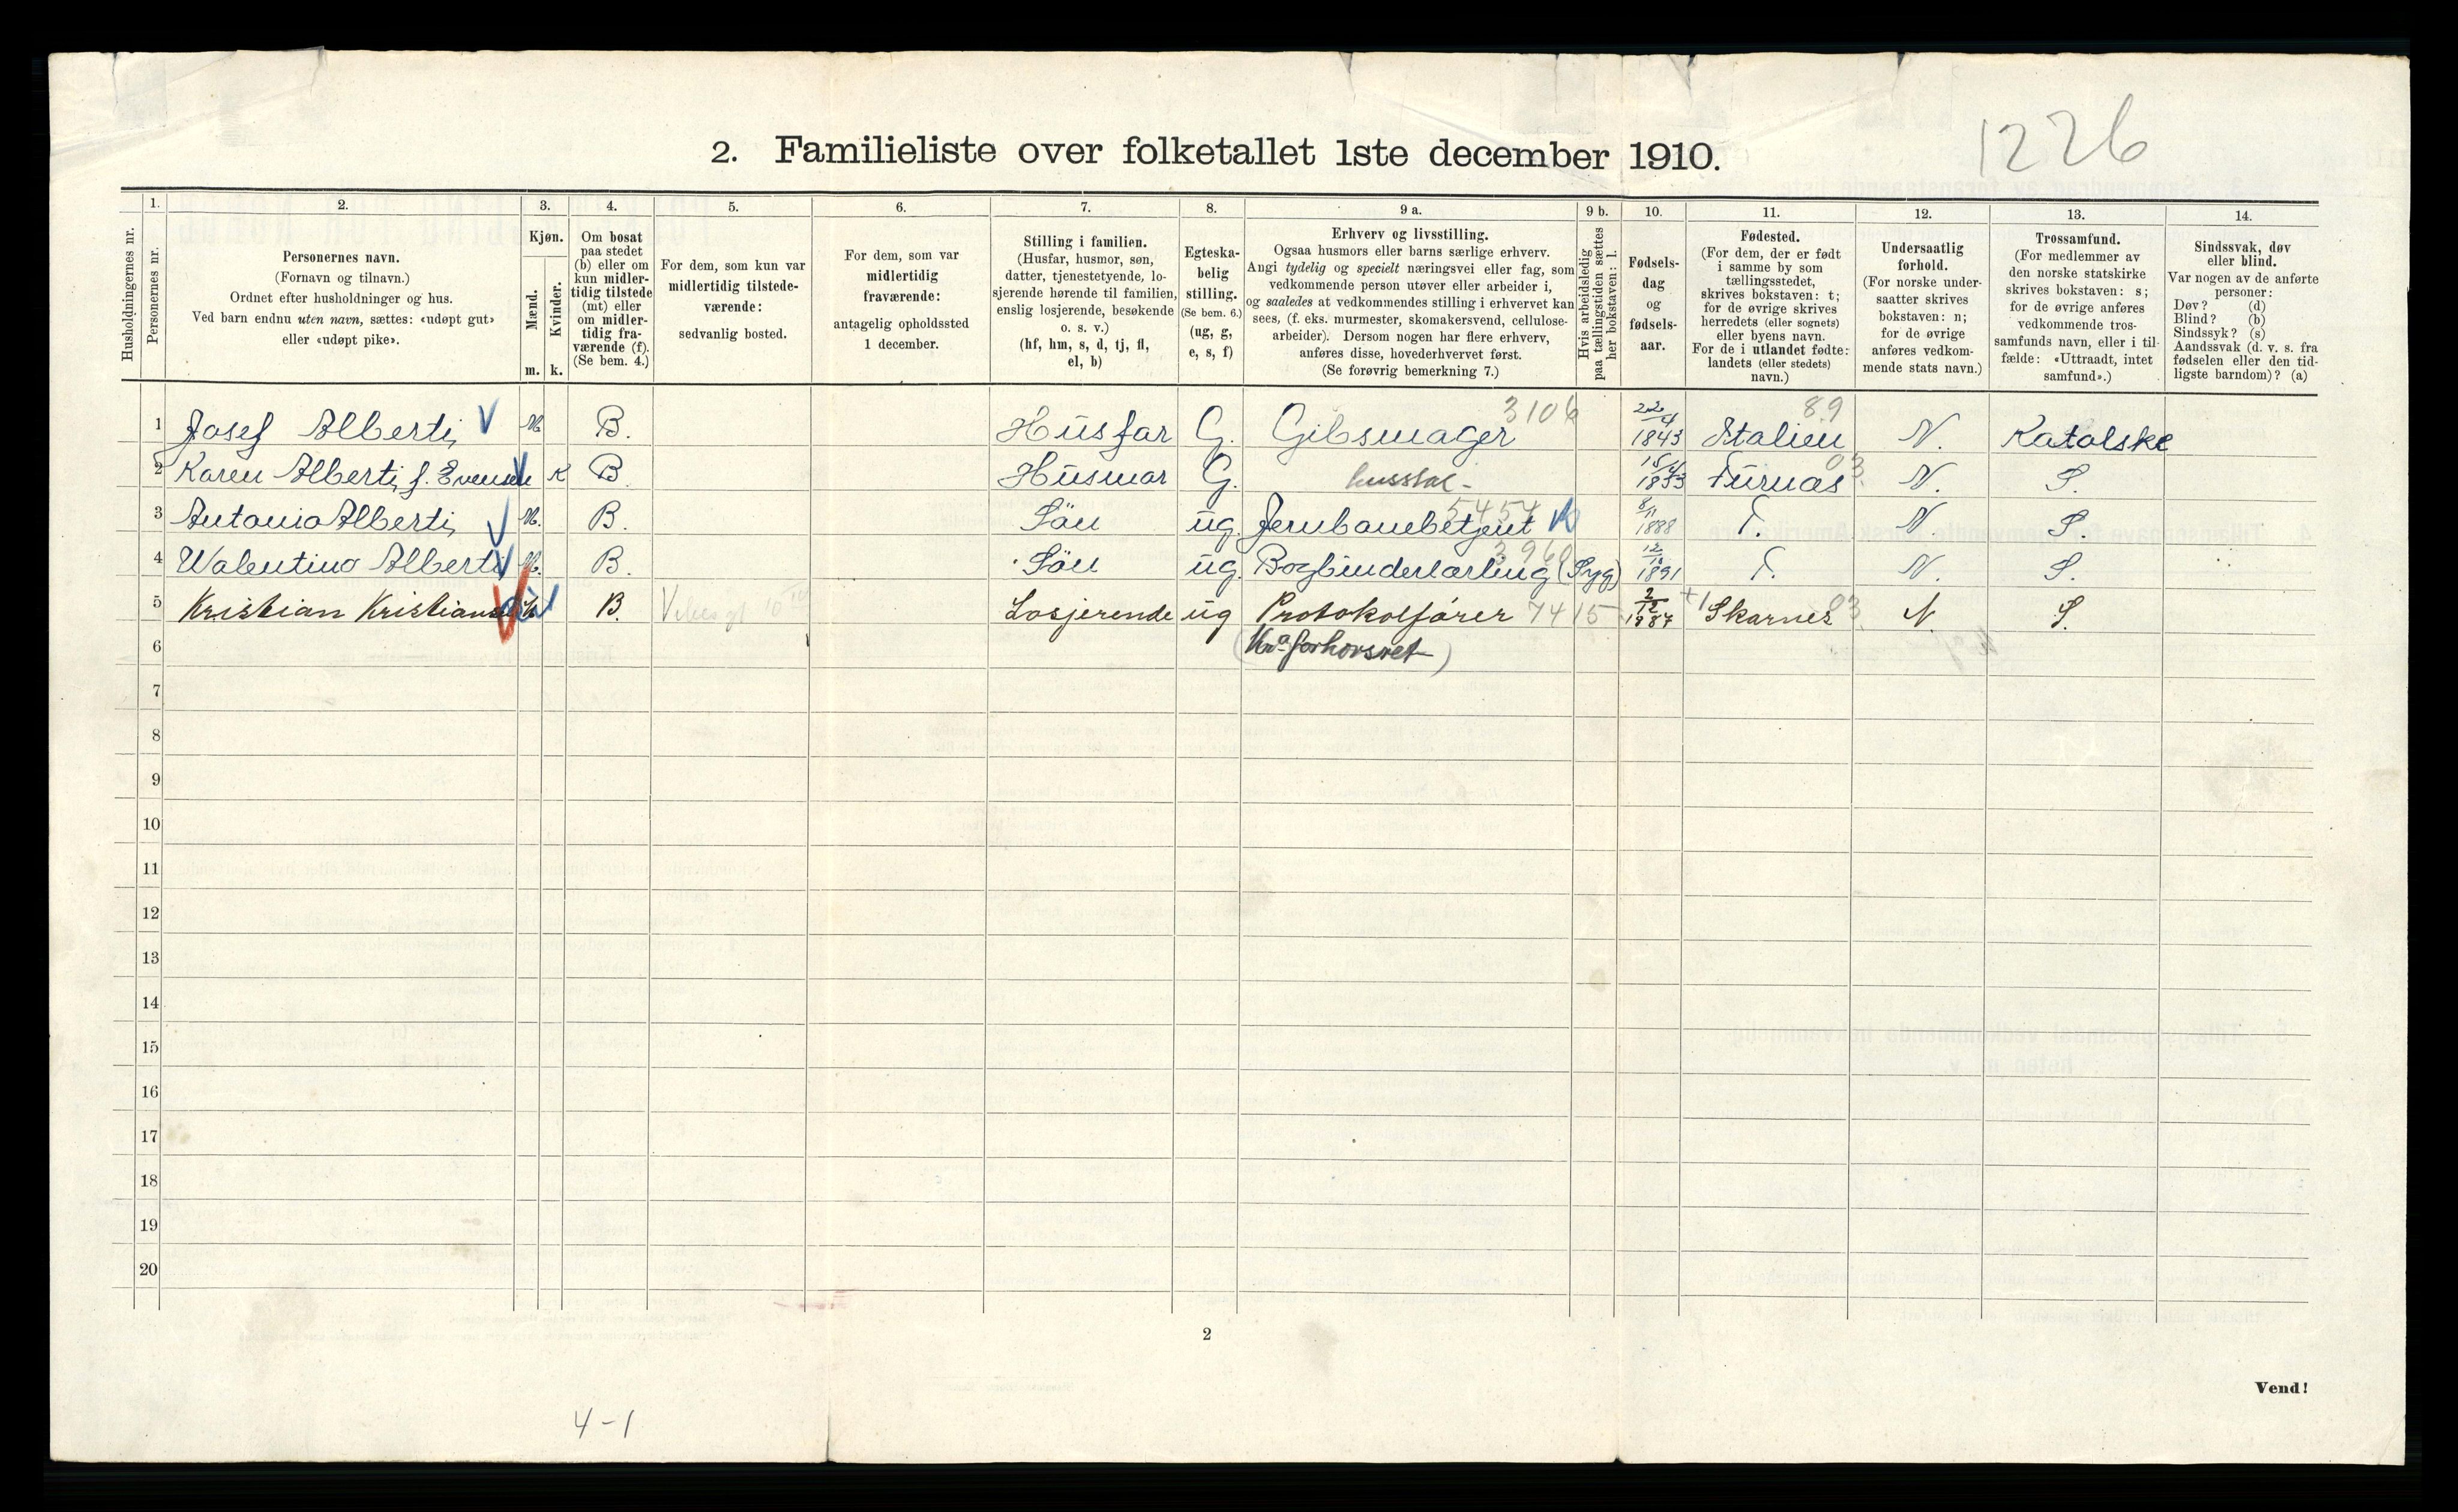 1226
2. Familieliste over folketallet 1ste december 1910.
Husholdningernes nr.
1.
Personernes nr.
2.
Personernes navn.
(Fornavn og tilnavn.)
Ordnet efter husholdninger og hus.
Ved barn endnu uten navn, sættes: «udøpt gut»
eller «udøpt pike».
3.
Kjøn.
Mænd.
Kvinder.
m. k.
4.
Om bosat
paa stedet
(b) eller om
kun midler-
tidig tilstede
(mt) eller
om midler-
tidig fra-
værende (f).
(Se bem. 4.)
5.
For dem, som kun var
midlertidig tilstede-
værende:
sedvanlig bosted.
6.
For dem, som var
midlertidig
fraværende:
antagelig opholdssted
1 december.
7.
Stilling i familien.
(Husfar, husmor, søn,
datter, tjenestetyende, lo-
sjerende hørende til familien,
enslig losjerende, besøkende
o. s. v.)
(hf, hm, s, d, tj, fl,
el, b)
8.
Egteska-
belig
stilling.
(Se bem. 6.)
(ug, g,
e, s, f)
9 a.
Erhverv og livsstilling.
Ogsaa husmors eller barns særlige erhverv.
Angi tydelig og specielt næringsvei eller fag, som
vedkommende person utøver eller arbeider i,
og saaledes at vedkommendes stilling i erhvervet kan
sees, (f. eks. murmester, skomakersvend, cellulose-
arbeider). Dersom nogen har flere erhverv,
anføres disse, hovederhvervet først.
(Se forøvrig bemerkning 7.)
9 b.
Hvis arbeidsledig
paa tællingstiden sættes
her bokstaven: l.
10.
Fødsels-
dag
og
fødsels-
aar.
11.
Fødested.
(For dem, der er født
i samme by som
tællingsstedet,
skrives bokstaven: t;
for de øvrige skrives
herredets (eller sognets)
eller byens navn.
For de i utlandet fødte:
landets (eller stedets)
navn.)
12.
Undersaatlig
forhold.
(For norske under-
saatter skrives
bokstaven: n;
for de øvrige
anføres vedkom-
mende stats navn.)
13.
Trossamfund.
(For medlemmer av
den norske statskirke
skrives bokstaven: s;
for de øvrige anføres
vedkommende tros-
samfunds navn, eller i til-
fælde: «Uttraadt, intet
samfund».)
14.
Sindssvak, døv
eller blind.
Var nogen av de anførte
personer:
Døv? (d)
Blind? (b)
Sindssyk? (s)
Aandssvak (d. v. s. fra
fødselen eller den tid-
ligste barndom)? (a)
3106 89
1 Josef Alberti M B. Husfar G. Gibsmager 22/4 1843 Italien N. Katolske
2 Karen Alberti f. Evensen K B. Husmor G. husstel - 1853 Furnæs 03 N. S.
3 Antonio Alberti M. B. Sön ug. Jernbanebetjent 5454 8/11 1888 T. N. S.
4 Walentino Alberti M. B. Sön ug. Bogbinderlærling (Syg) 3960 1891 T. N. S.
5 Kristian Kristiansen B. Losjerende ug Protokolfører 7415 2/12 1887 Skarnes 03 N. S.
6 (Kra forhørsret)
7
8
9
10
11
12
13
14
15
16
17
18
19
20
2
Vend!
4-1